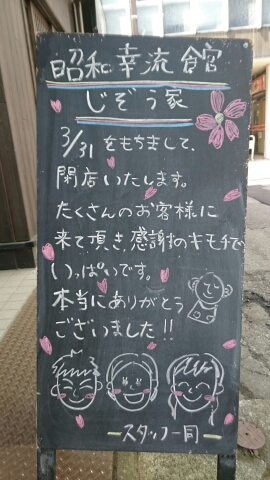 昭和幸流館
じぞう家
3/31をもちまして、
閉店いたします。
たくさんのお客様に
来て頂き、感謝のキモチで
いっぱいです。
本当にありがとう
ございました!!
ースタッフ一同ー